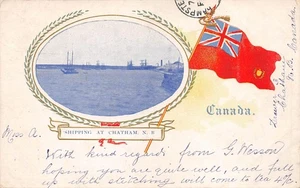 Canada.
SHIPPING AT CHATHAM. N. B.
Miss A.
With kind regards from G. Wesson
hoping you are quite well, and full
up with stitching will come to
Chatham
N.B.
Canada